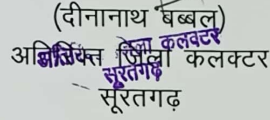 (दीनानाथ बब्बल)
अतिरिक्त जिला कलक्टर
सूरतगढ़
जिला कलक्टर
सूरतगढ़